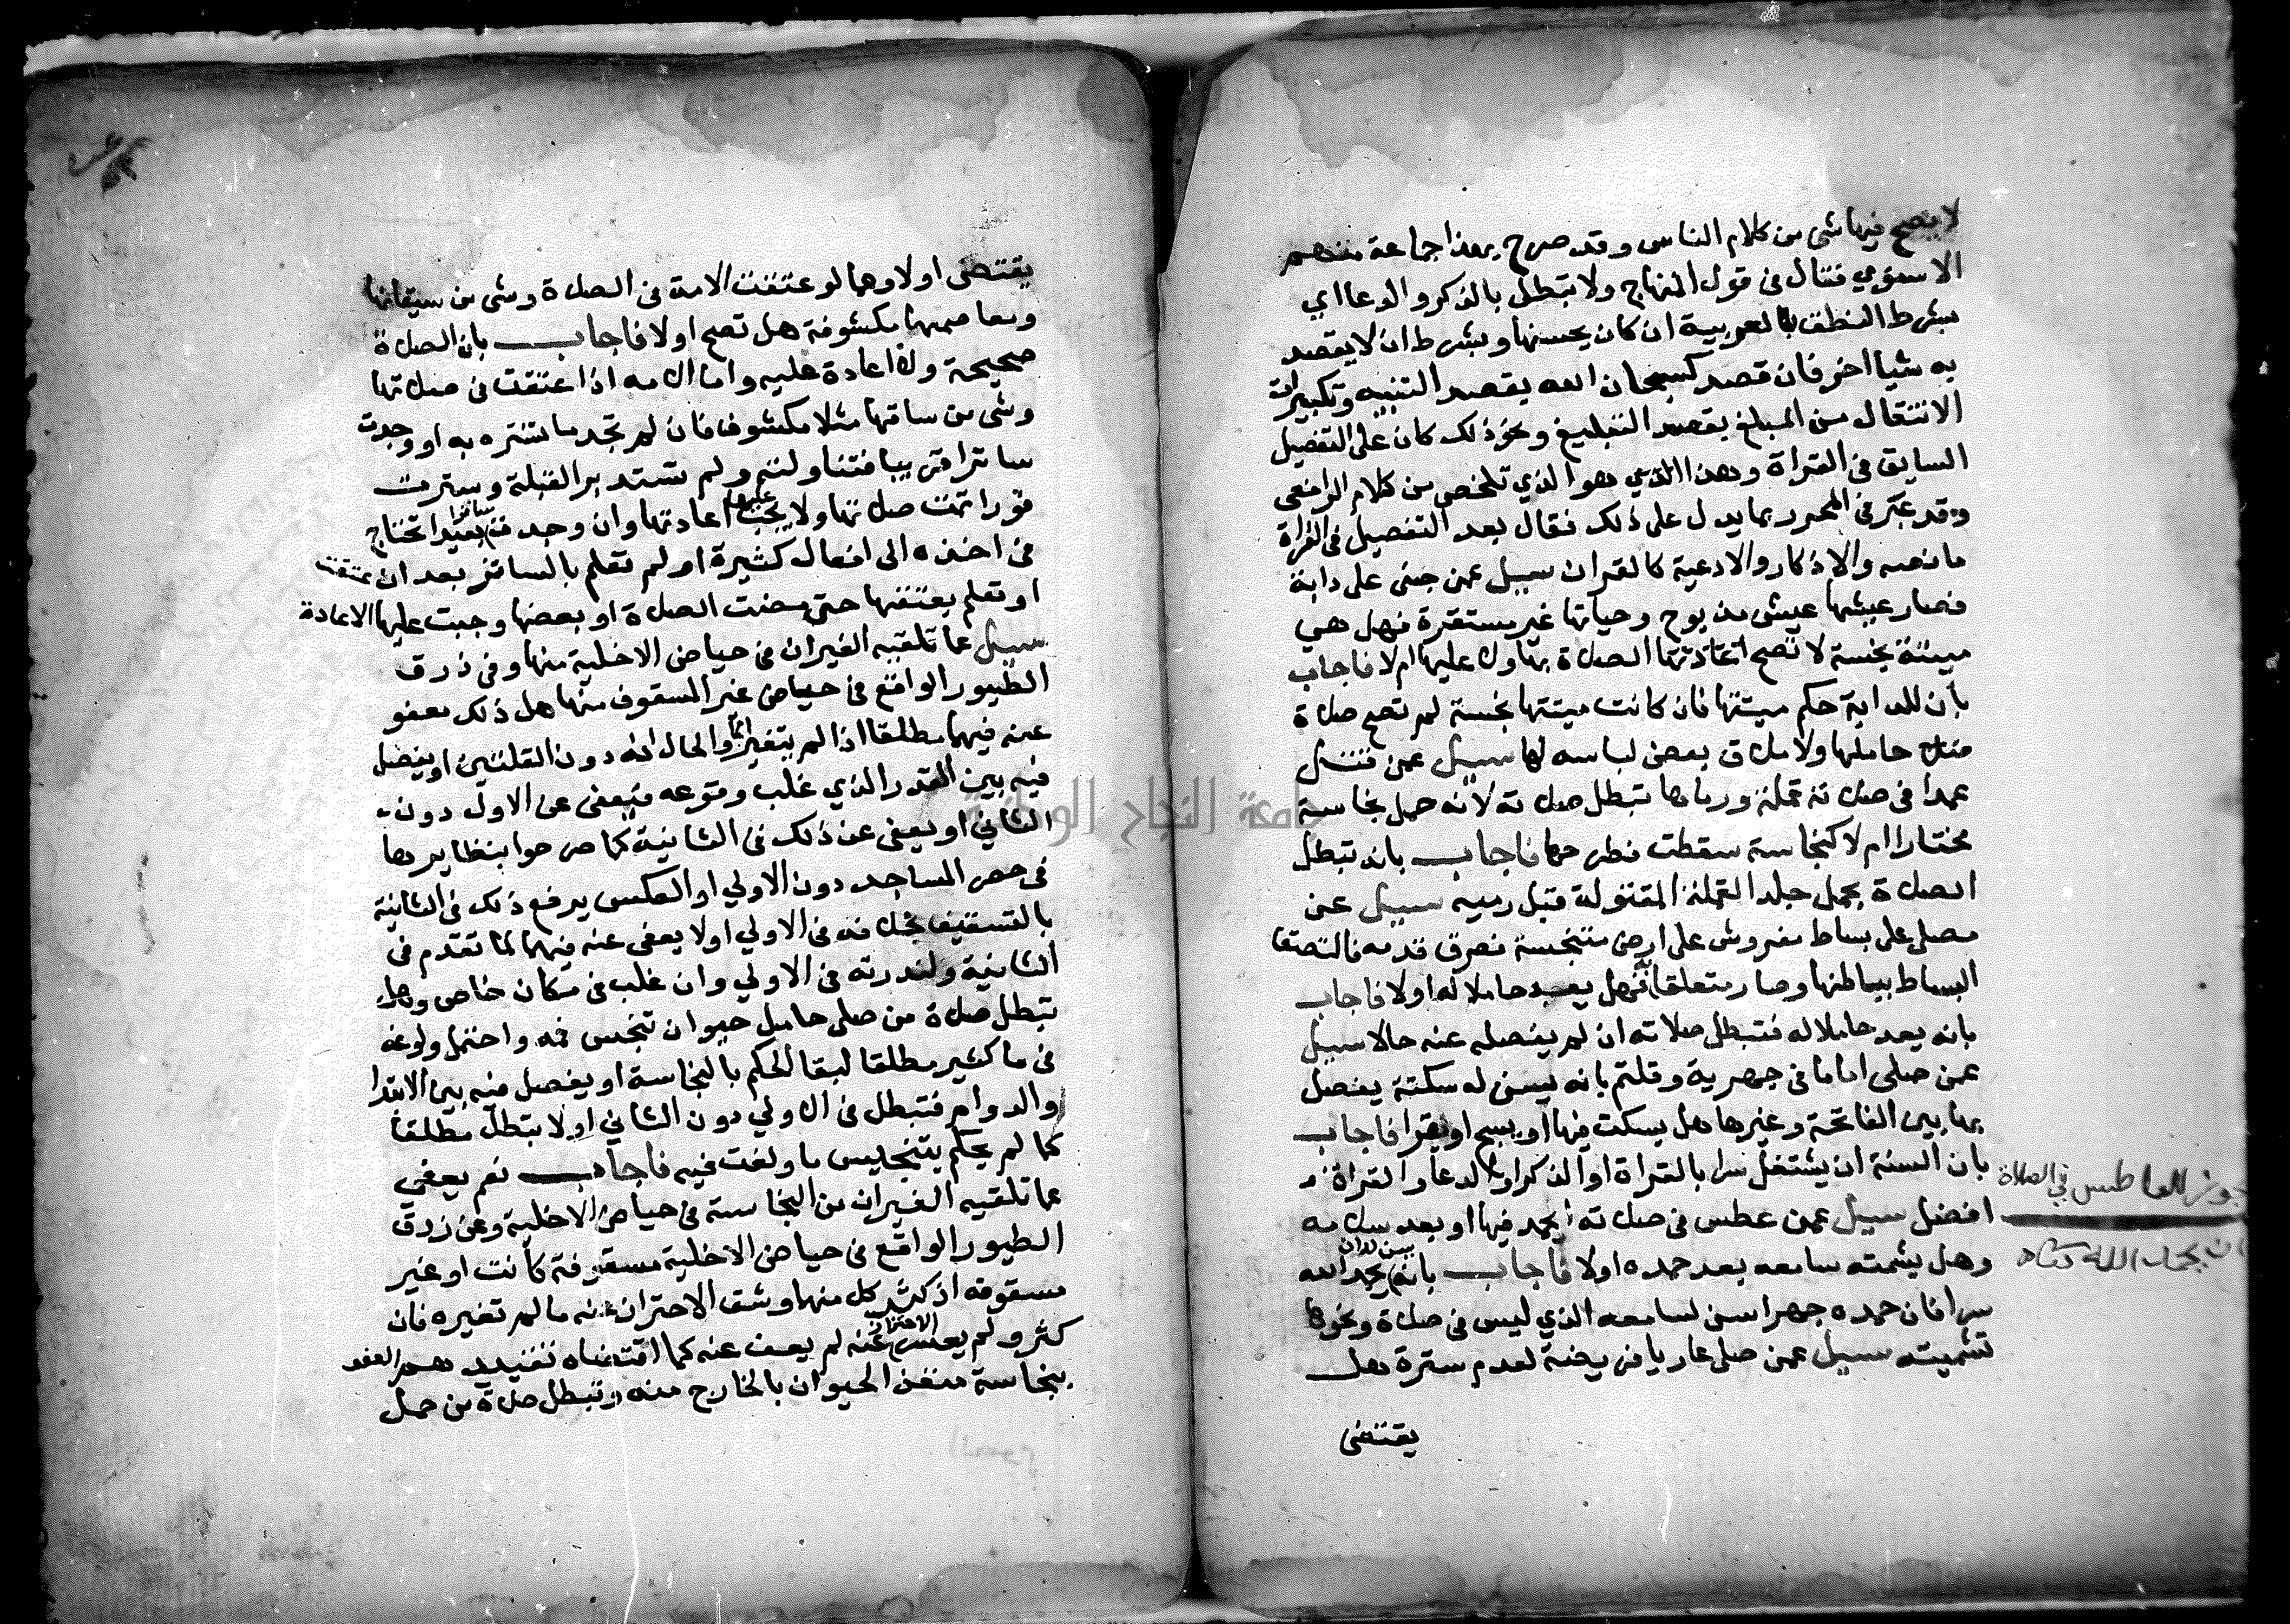 لا يصح فيها شي من كلام الناس وقد صرح بهذا جماعة منهم
الاسنوي فقال في قول المنهاج ولا تبطل بالذكر والدعا اي
بشرط النطق بالعربية ان كان يحسنها وبشرط ان لا يقصد
به شيا اخر فان قصد كسبحان الله بقصد التنبيه وتكبيرات
الانتقال من المبلغ بقصد التبليغ ونحو ذلك كان على التفصيل
السابق في القراة وهذا الذي هو الذي تلخص من كلام الرافعي
وقد عبر في المحرر بما يدل على ذلك فقال بعد التفصيل في القراة
ما نصه والاذكار والادعية كالقران سيل عمن جنى على دابة
فصار عيشها عيش مذبوح وحياتها غير مستقرة فهل هي
ميتة نجسة لا تصح الصلاة بها ولا عليها ام لا فاجاب
بان للدابة حكم ميتتها فان كانت ميتتها نجسة لم تصح صلاة
حاملها ولا ملاق بعض لباسه لها سيل عمن قتل
عمدا في صلاته قملة ورماها تبطل صلاته لانه حمل نجاسة
مختارا ام لا كنجاسة سقطت فطرحها فاجاب بانه تبطل
الصلاة بحمل جلد القملة المقتولة قبل رميه سيل عن
مصلي على بساط مفروش على ارض متنجسة فعرق قدمه فالتصق
البساط بباطنها وصار متعلقا به فهل يعد حاملا له اولا فاجاب
بانه يعد حاملا له فتبطل صلاته ان لم يفصله عنه حالا سيل
عمن صلى اماما في جهرية وقلتم بانه يسن له سكتة يفصل
بها بين الفاتحة وغيرها هل يسكت فيها او يسبح او يقرا فاجاب
بان السنة ان يشتغل سرا بالقراة او الذكر او الدعا والقراة
افضل سيل عمن عطس في صلاته ايحمد فيها او بعد سلامه
وهل يشمته سامعه بعد حمده اولا فاجاب بانه يسن له ان يحمد الله
سرا فان حمده جهرا سن لسامعه الذي ليس في صلاة ونحوها
تشميته سيل عمن صلى عاريا فريضة لعدم سترة هل
يقتضي
للعاطس في الصلاة
ان يحمد الله
يقتضي اولا وهما لو عتقت الامة في الصلاة وشي من سيقانها
ومعاصمها مكشوفة هل تصح اولا فاجاب بان الصلاة
صحيحة ولا اعادة عليه واما الامه اذا عتقت في صلاتها
وشي من ساقها مثلا مكشوف فان لم تجد ما تستره به او وجدت
ساترا قريبا فتناولته ولم تستدبر القبلة وسترت
فورا تمت صلاتها ولا يجب عليها اعادتها وان وجدت ساترا بعيدا تحتاج
في اخذه الى افعال كثيرة او لم تعلم بالساتر بعد ان عتقت
او تعلم بعتقها حتى مضت الصلاة او بعضها وجبت عليها الاعادة
سيل عما تلقيه الفيران في حياض الاخلية منها وفي ذرق
الطيور الواقع في حياض غير المسقوف منها هل ذلك معفو
عنه فيهما مطلقا اذا لم يتغير الما والحال انه دون القلتين او يفصل
فيه بين القدر الذي غلب وقوعه فيعفى عن الاول دون
الثاني او يعفى عن ذلك في الثانية كما صرحوا بنظايرها
في حصر المساجد دون الاولي او العكس يرفع ذلك في الثانية
بالتسقيف بخلافه في الاولي اولا يعفى عنه فيهما لما تقدم في
الثانية ولندرته في الاولي وان غلب في مكان خاص وهل
تبطل صلاة من صلى حامل حيوان تنجس فمه واحتمل ولوغه
في ما كثير مطلقا لبقا الحكم بالنجاسة او يفصل فيه بين الابتدا
والدوام فتبطل في الاولي دون الثاني اولا تبطل مطلقا
كما لم يحكم بتنجيس ما ولغت فيه فاجاب نعم يعفى
عما تلقيه الفيران من النجاسة في حياض الاخلية وعن زرق
الطيور الواقع في حياض الاخلية مسقوفة كانت او غير
مسقوفه اذ كثر كل منها وشق الاحتراز عنه ما لم تغيره فان
كثر ولم يعسر الاحتراز عنه لم يعف عنه كما اقتضاه تقييدهم العفو
بنجاسة منفذ الحيوان بالخارج منه وتبطل صلاة من حمل
جامعة النجاح الوطنية